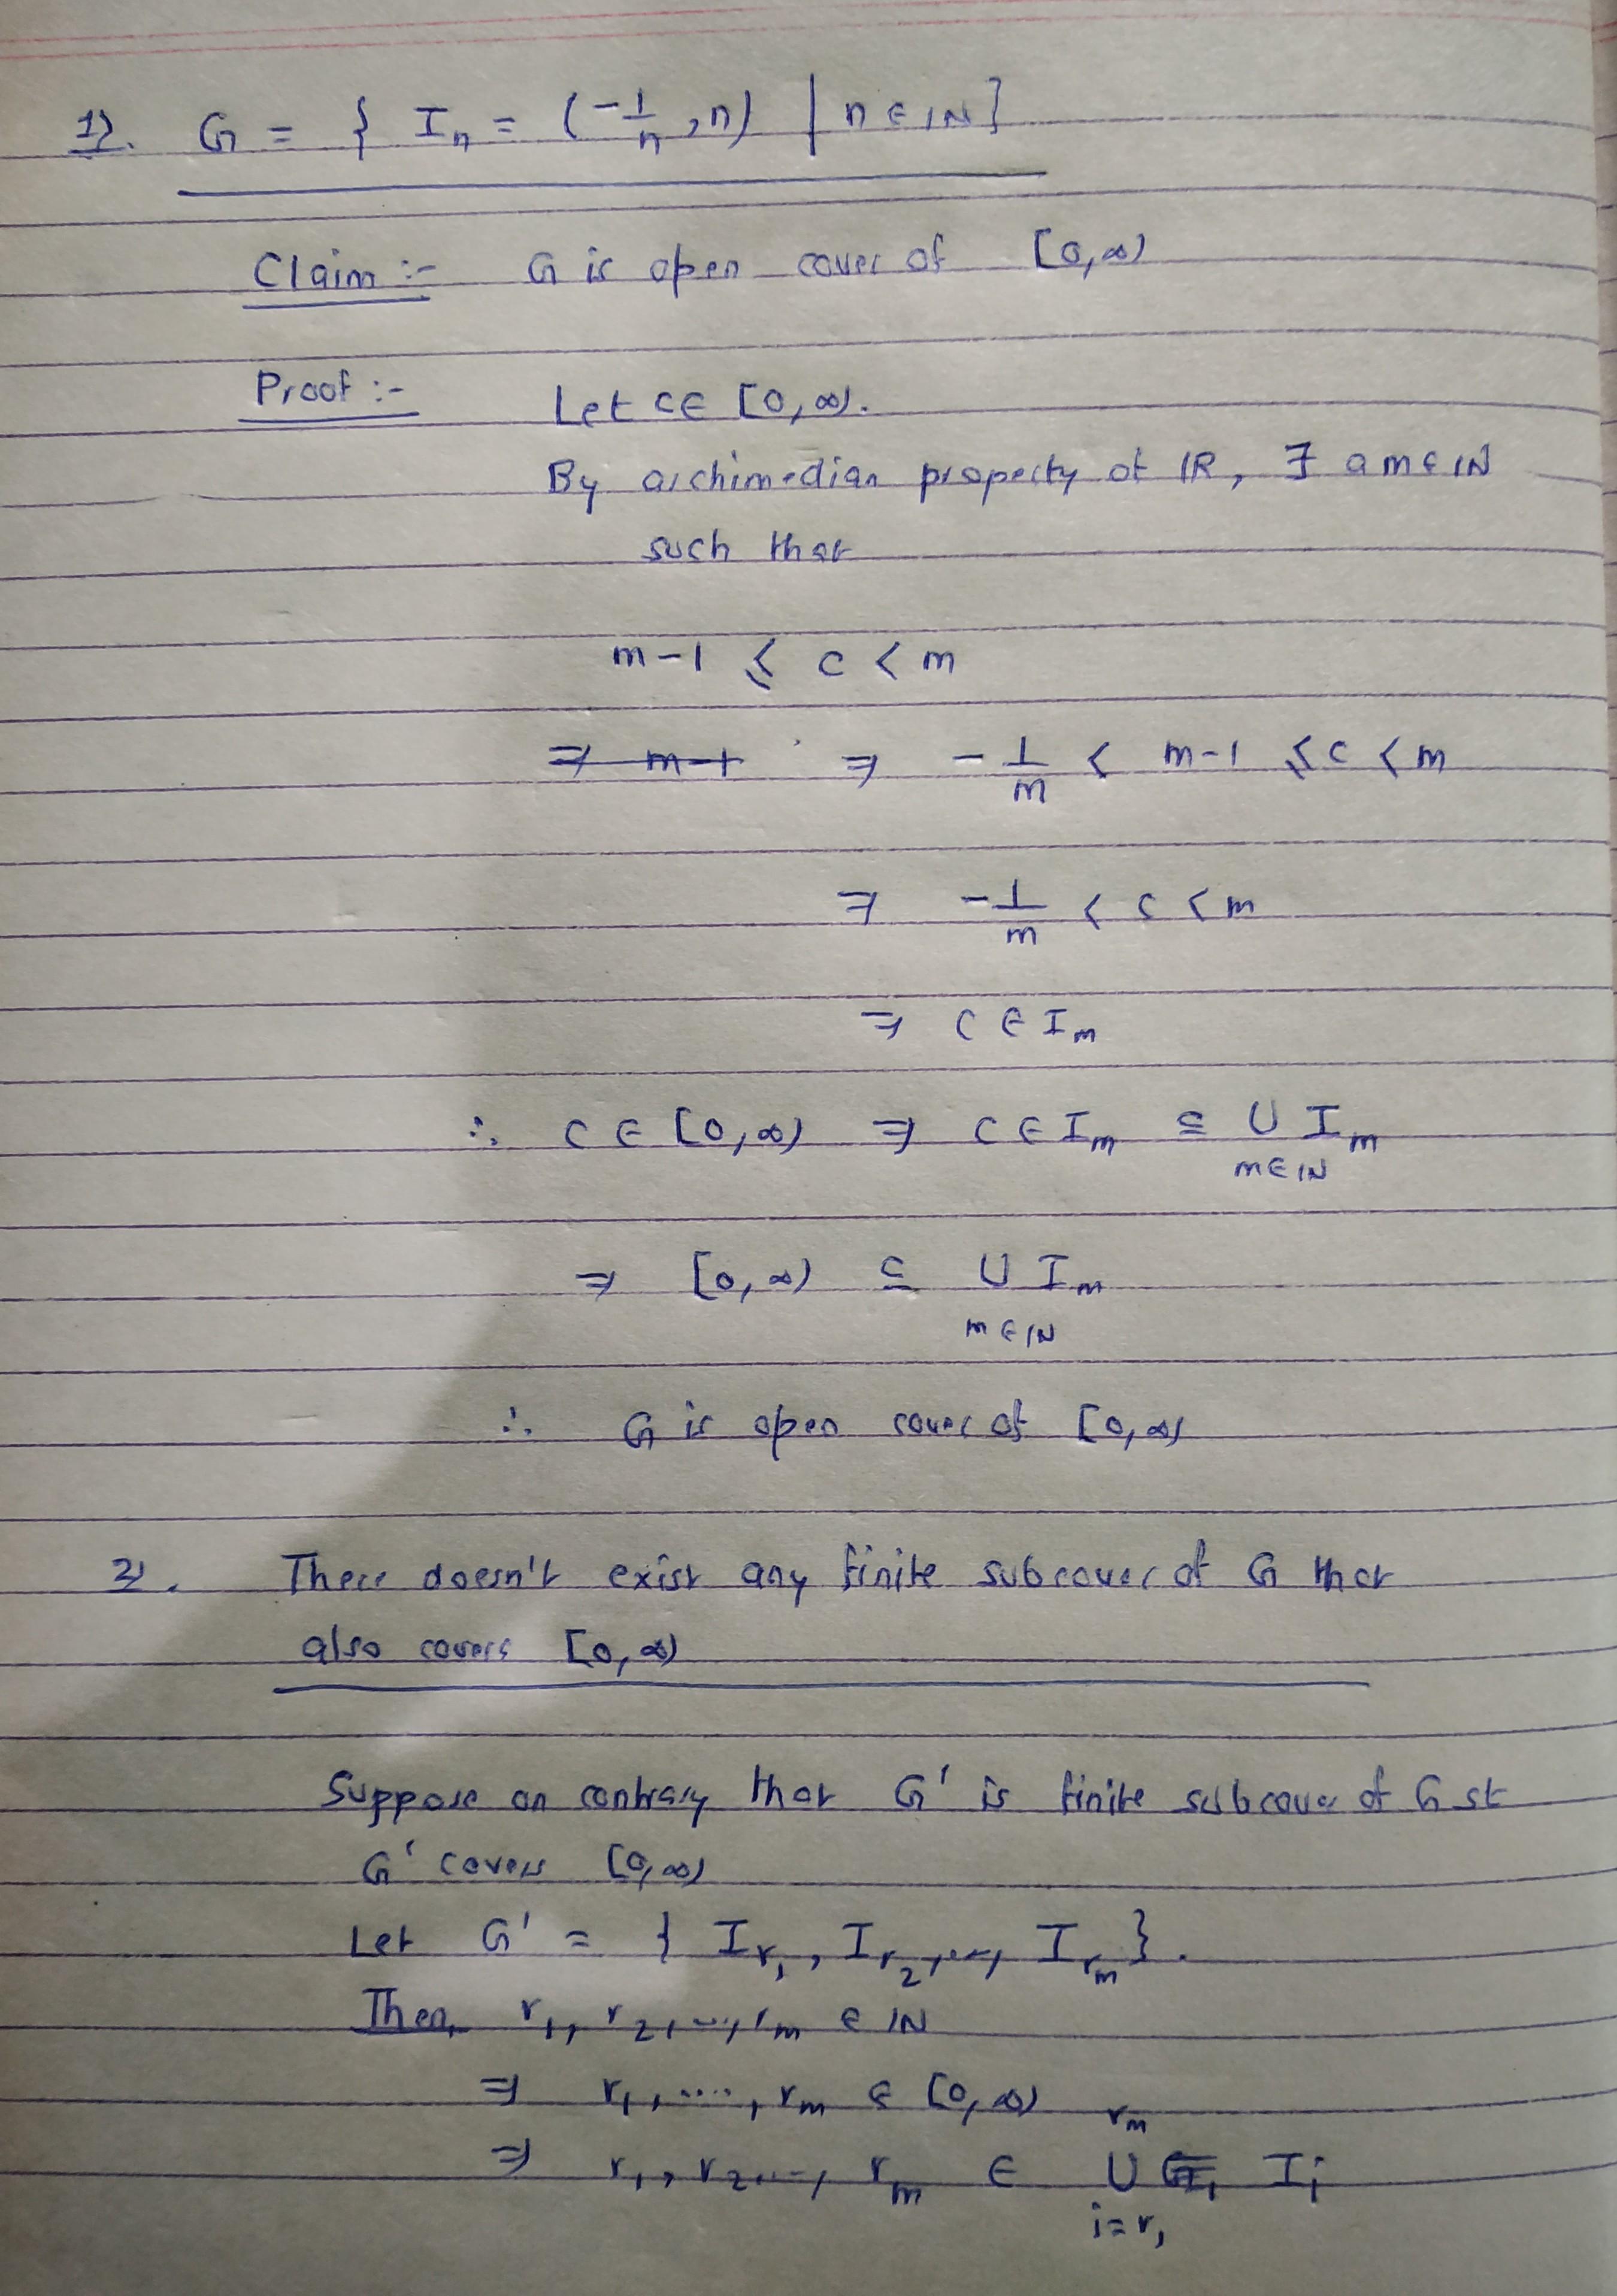 1). G = { Iₙ = (-1/n, n) | n ∈ IN }
Claim :- G is open cover of [0,∞)
Proof :- Let c∈ [0,∞).
By archimedian property of IR, ∃ a m∈IN
such that
m-1 ≤ c < m
⇒ -1/m < m-1 ≤ c < m
⇒ -1/m < c < m
⇒ c ∈ Iₘ
∴ c ∈ [0,∞) ⇒ c ∈ Iₘ ⊆ ∪_{m∈IN} Iₘ
⇒ [0,∞) ⊆ ∪_{m∈IN} Iₘ
∴ G is open cover of [0,∞)
2). There doesn't exist any finite subcover of G that
also covers [0,∞)
Suppose on contrary that G' is finite subcover of G st
G' covers [0,∞)
Let G' = { I_{r₁}, I_{r₂}, ..., I_{rₘ} }.
Then, r₁, r₂, ..., rₘ ∈ IN
⇒ r₁, ...., rₘ ∈ [0,∞)
⇒ r₁, r₂, ..., rₘ ∈ ∪_{i=r₁}^{rₘ} Iᵢ